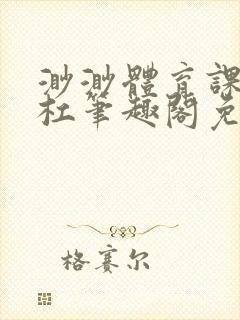 渺渺體育課
杜筆趣閣免
格賽尔